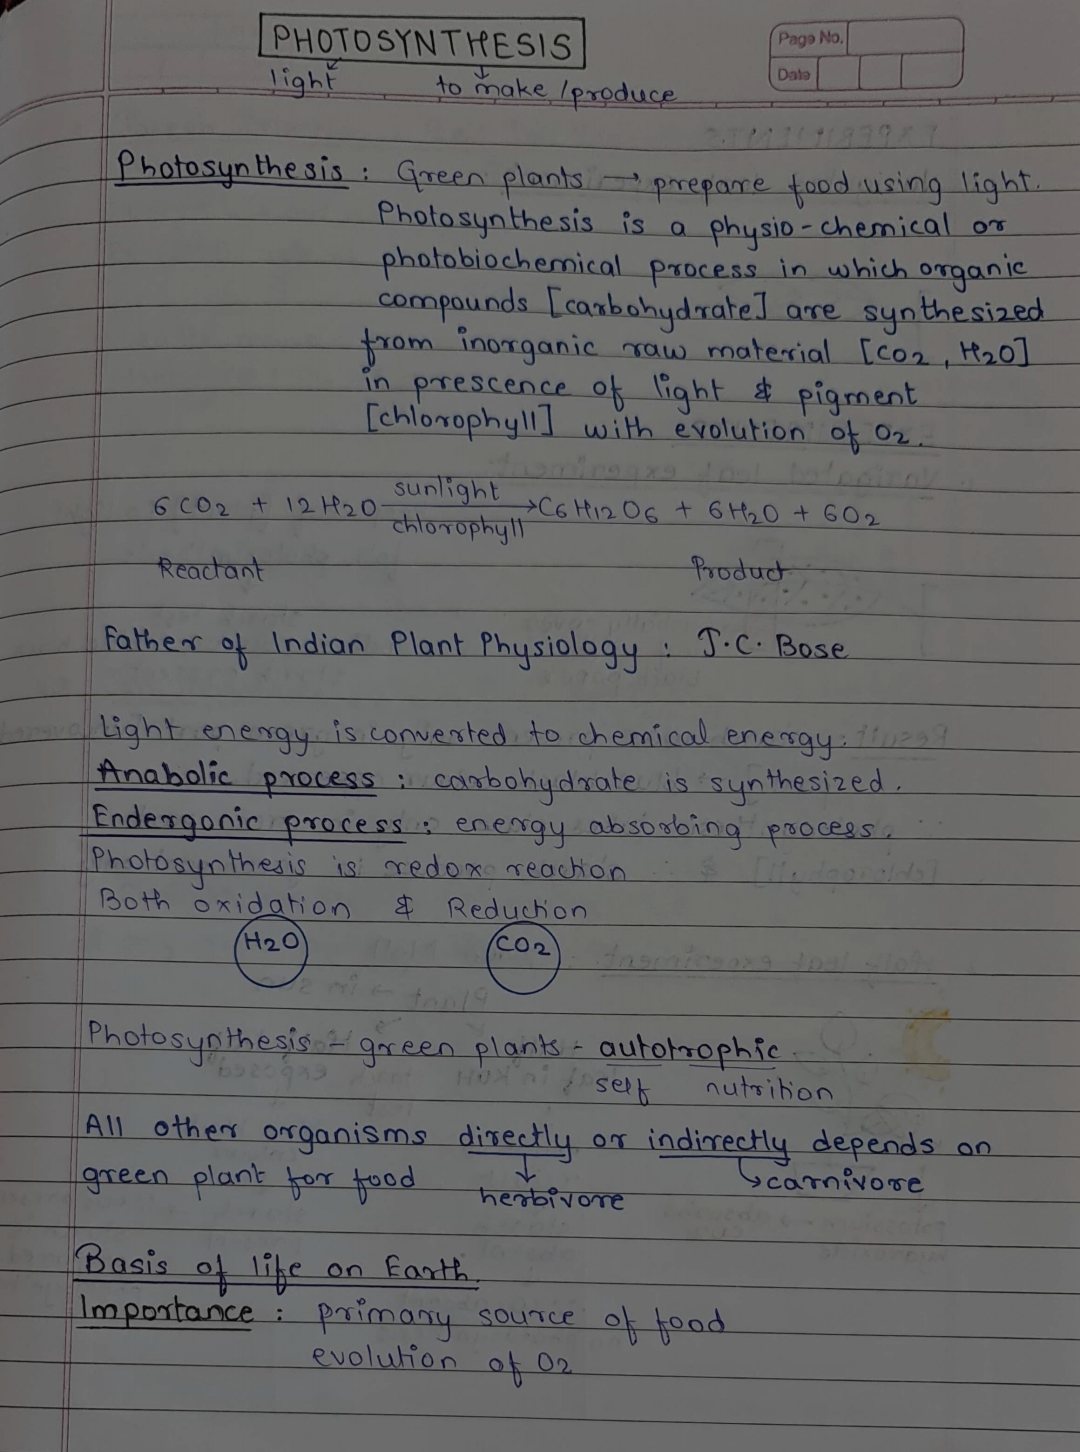 PHOTOSYNTHESIS
light to make/produce
Page No.
Date
Photosynthesis : Green plants → prepare food using light.
Photosynthesis is a physio-chemical or
photobiochemical process in which organic
compounds [carbohydrate] are synthesized
from inorganic raw material [CO2, H2O]
in prescence of light & pigment
[chlorophyll] with evolution of O2.
6CO2 + 12H2O sunlight → C6H12O6 + 6H2O + 6O2
chlorophyll
Reactant Product
Father of Indian Plant Physiology : J.C. Bose
Light energy is converted to chemical energy.
Anabolic process : carbohydrate is synthesized.
Endergonic process : energy absorbing process.
Photosynthesis is redox reaction
Both oxidation & Reduction
H2O CO2
Photosynthesis - green plants - autotrophic
self nutrition
All other organisms directly or indirectly depends on
green plant for food ↓ herbivore ↳ carnivore
Basis of life on Earth.
Importance : primary source of food
evolution of O2